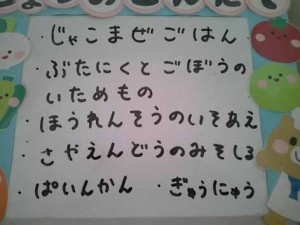 ・じゃこまぜごはん
・ぶたにくとごぼうの
いためもの
・ほうれんそうのいそあえ
・さやえんどうのみそしる
・ぱいんかん ・ぎゅうにゅう